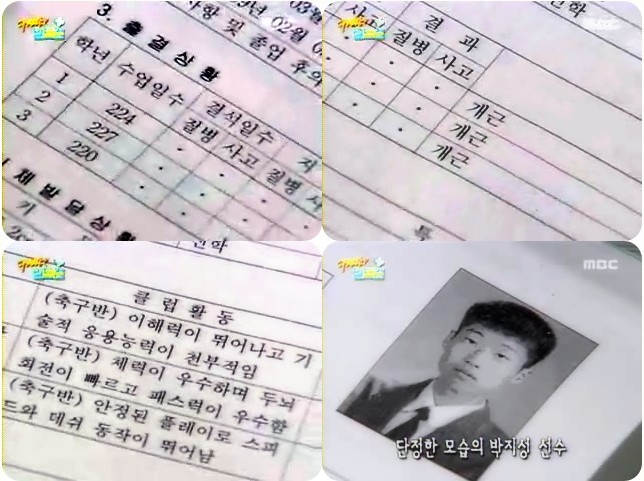 3. 출결상황
학년 수업일수 결석일수
질병 사고 질병
1 224
2 227
3 220
결 과
사고 질병 사고
개근
개근
개근
클럽활동
(축구반) 이해력이 뛰어나고 기
술적 응용능력이 천부적임
(축구반) 체력이 우수하며 두뇌
회전이 빠르고 패스력이 우수함
(축구반) 안정된 플레이로 스피
드와 데쉬 동작이 뛰어남
MBC
단정한 모습의 박지성 선수